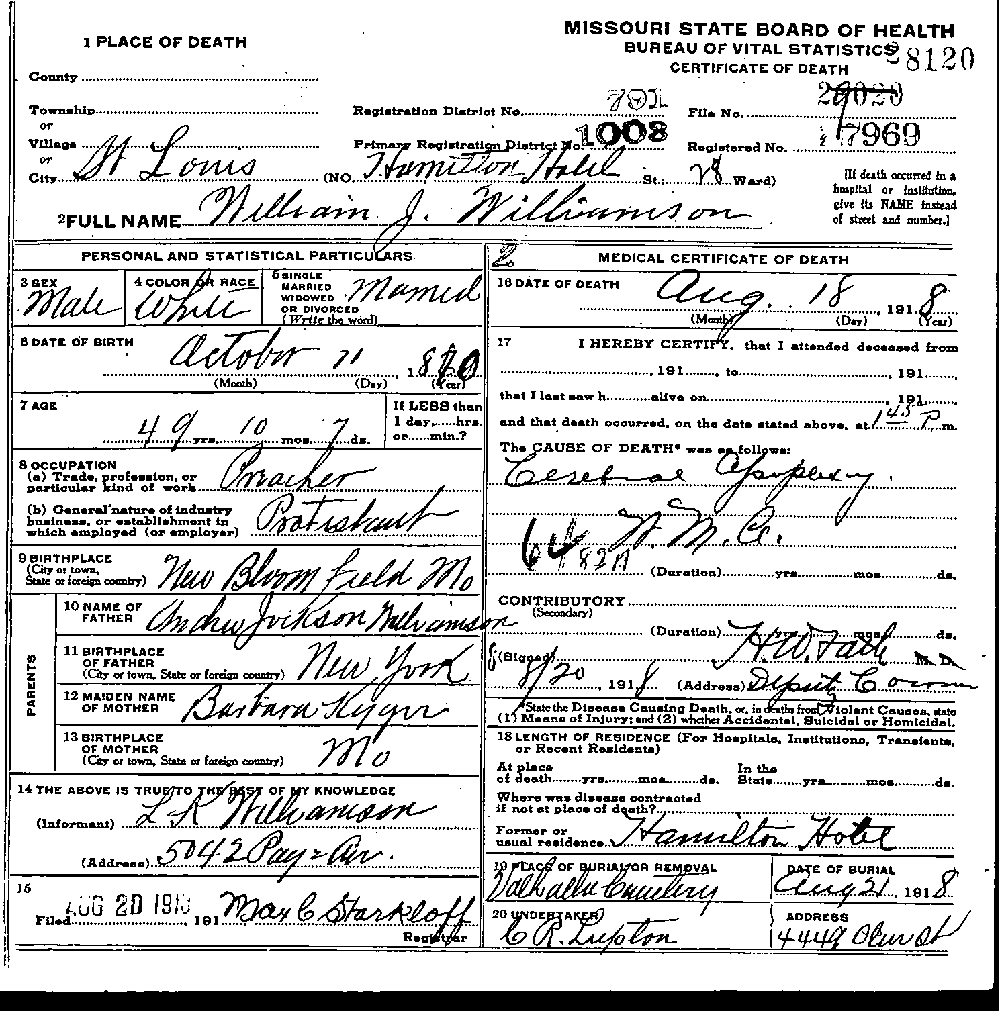 MISSOURI STATE BOARD OF HEALTH
BUREAU OF VITAL STATISTICS
CERTIFICATE OF DEATH
28120
1 PLACE OF DEATH
County
Township
or
Village
or
City St Louis
Registration District No.
Primary Registration District No. 1003
(NO. Hamilton Hotel St.; 28 Ward)
File No.
Registered No. 7969
[If death occurred in a
hospital or institution,
give its NAME instead
of street and number.]
2 FULL NAME William J. Williamson
PERSONAL AND STATISTICAL PARTICULARS
3 SEX
Male
4 COLOR OR RACE
White
5 SINGLE
MARRIED
WIDOWED
OR DIVORCED
(Write the word)
Married
6 DATE OF BIRTH
October 11
(Month) (Day) (Year)
7 AGE
49 yrs. 10 mos. 7 ds.
If LESS than
1 day,......hrs.
or......min.?
8 OCCUPATION
(a) Trade, profession, or
particular kind of work Preacher
(b) General nature of industry
business, or establishment in
which employed (or employer) Protestant
9 BIRTHPLACE
(City or town,
State or foreign country) New Bloomfield Mo
PARENTS
10 NAME OF
FATHER Andrew Jackson Williamson
11 BIRTHPLACE
OF FATHER
(City or town, State or foreign country) New York
12 MAIDEN NAME
OF MOTHER Barbara
13 BIRTHPLACE
OF MOTHER
(City or town, State or foreign country) Mo
14 THE ABOVE IS TRUE TO THE BEST OF MY KNOWLEDGE
(Informant) L R Williamson
(Address) 5042
15
Filed AUG 20 191 Max C Starkloff
Registrar
2
MEDICAL CERTIFICATE OF DEATH
16 DATE OF DEATH
Aug. 18, 1918
(Month) (Day) (Year)
17 I HEREBY CERTIFY, that I attended deceased from
, 191 , to , 191 ,
that I last saw h alive on , 191 ,
and that death occurred, on the date stated above, at 1 45 P m.
The CAUSE OF DEATH* was as follows:
Cerebral Apoplexy
64
(Duration) yrs. mos. ds.
CONTRIBUTORY
(Secondary)
(Duration) mos. ds.
(Signed) M. D.
8/20, 1918 (Address) Deputy Coroner
*State the Disease Causing Death, or, in deaths from Violent Causes, state
(1) Means of Injury; and (2) whether Accidental, Suicidal or Homicidal.
18 LENGTH OF RESIDENCE (For Hospitals, Institutions, Transients,
or Recent Residents)
At place
of death yrs. mos. ds.
In the
State yrs. mos. ds.
Where was disease contracted
if not at place of death?
Former or
usual residence Hamilton Hotel
19 PLACE OF BURIAL OR REMOVAL
Valhalla Cemetery
DATE OF BURIAL
Aug 21 1918
20 UNDERTAKER
C R. Lupton
ADDRESS
4449 Olive St